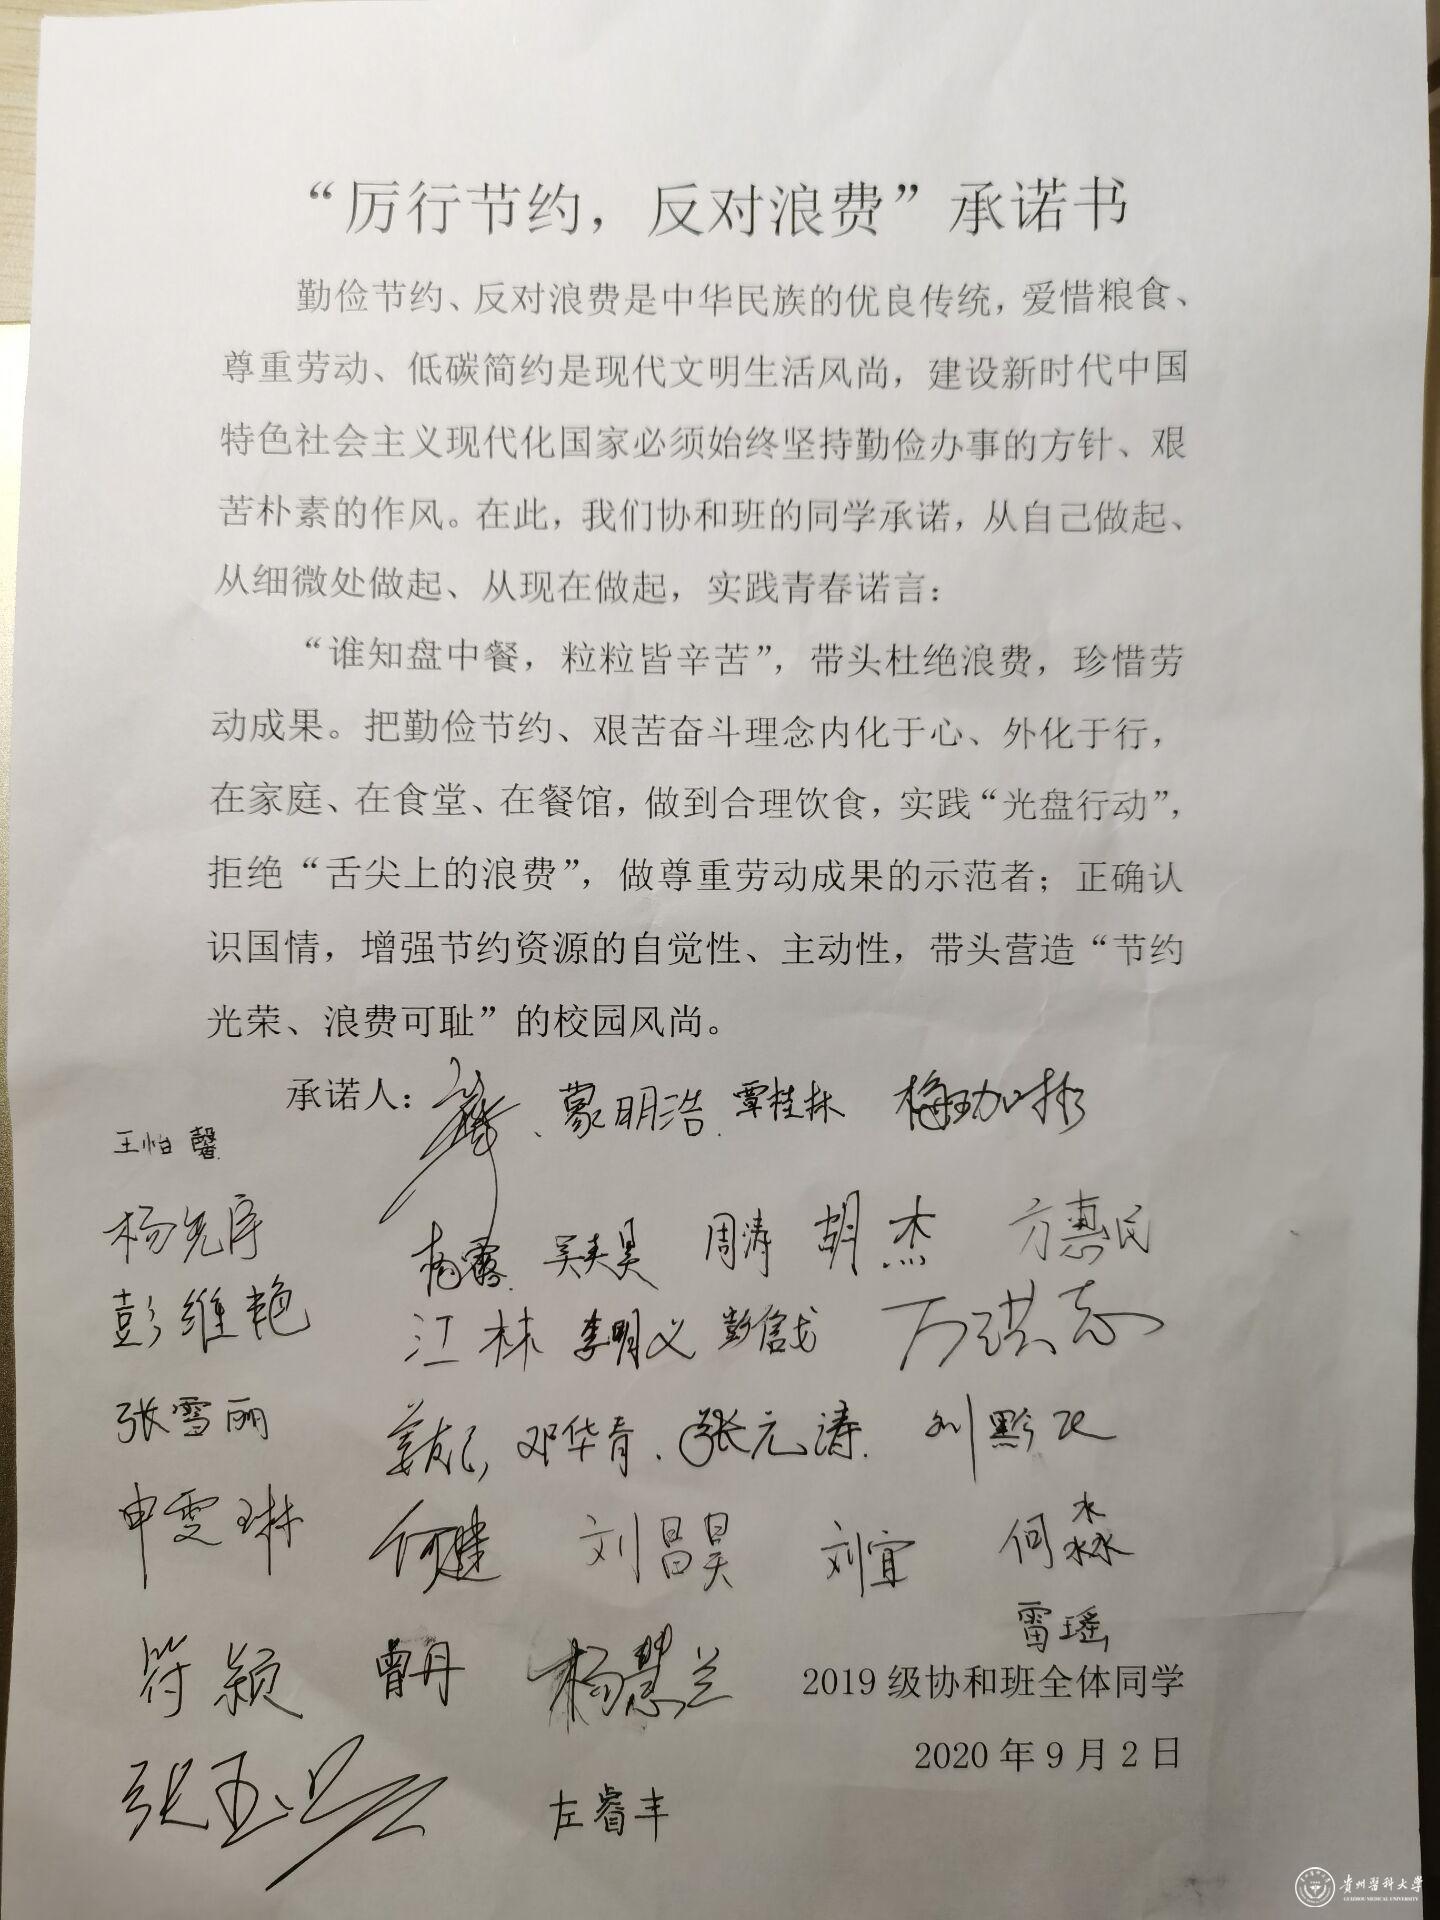 “厉行节约，反对浪费”承诺书
勤俭节约、反对浪费是中华民族的优良传统，爱惜粮食、
尊重劳动、低碳简约是现代文明生活风尚，建设新时代中国
特色社会主义现代化国家必须始终坚持勤俭办事的方针、艰
苦朴素的作风。在此，我们协和班的同学承诺，从自己做起、
从细微处做起、从现在做起，实践青春诺言：
“谁知盘中餐，粒粒皆辛苦”，带头杜绝浪费，珍惜劳
动成果。把勤俭节约、艰苦奋斗理念内化于心、外化于行，
在家庭、在食堂、在餐馆，做到合理饮食，实践“光盘行动”，
拒绝“舌尖上的浪费”，做尊重劳动成果的示范者；正确认
识国情，增强节约资源的自觉性、主动性，带头营造“节约
光荣、浪费可耻”的校园风尚。
承诺人： 蒙明浩 覃桂林
王怡馨
杨 杨露 周涛 胡杰 方惠民
彭维艳 江林 李明义 彭信戈 万洪志
张雪丽 邓华青、张元涛 刘黔
申雯琳 何健 刘昌昊 刘宜 何淼
雷瑶
符颖 曾丹 杨慧兰
2019级协和班全体同学
2020年9月2日
张玉
左睿丰
贵州医科大学
GUIZHOU MEDICAL UNIVERSITY